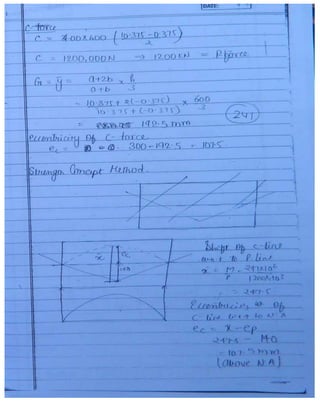 C-force
C = 400×600 (10.375 - 0.375 / 2)
C = 1200,000N → 1200KN = P force
G = ȳ = a+2b / a+b × h/3
= 10.375 + 2(-0.375) / 10.375 + (-0.375) × 600/3
= 192.5 mm
Eccentricity of C-force
ec = 300-192.5 = 107.5
Strength Concept Method.
Shift of C-line
w.r.t to P line
x = M
= 247.5
Eccentricity of
C line w.r.t to N.A
ec = x - ep
247.5 - 140
= 107.5 mm
(above N.A)